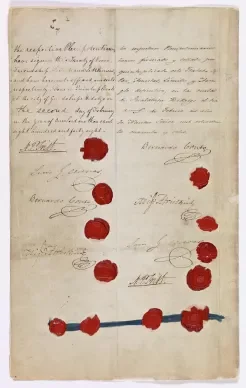 the respective Plenipotentiaries
have signed this Treaty of Peace
Friendship, Limits and Settlement,
and have hereunto affixed our seals
respectively. Done in Quintuplicate
at the City of Guadalupe Hidalgo on
the second day of February
in the year of our Lord one thousand
eight hundred and forty eight.
N. P. Trist
Luis G. Cuevas
Bernardo Couto
Migl. Atristain
los respectivos Plenipotenciarios
hemos firmado y sellado por
quintuplicado este Tratado de
Paz, Amistad, Limites y Arre-
glo definitivo, en la ciudad
de Guadalupe Hidalgo el dia
dos de Febrero del año
de Nuestro Señor mil ochocientos
cuarenta y ocho.
Bernardo Couto
Migl. Atristain
Luis G. Cuevas
N. P. Trist